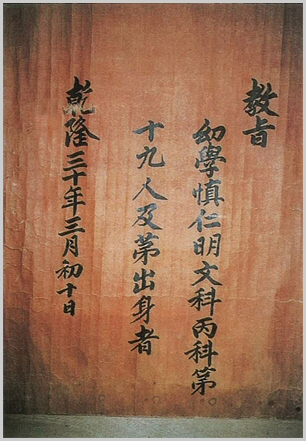 教旨
幼學慎仁明文科丙科第
十九人及苐出身者
乾隆三十年三月初十日